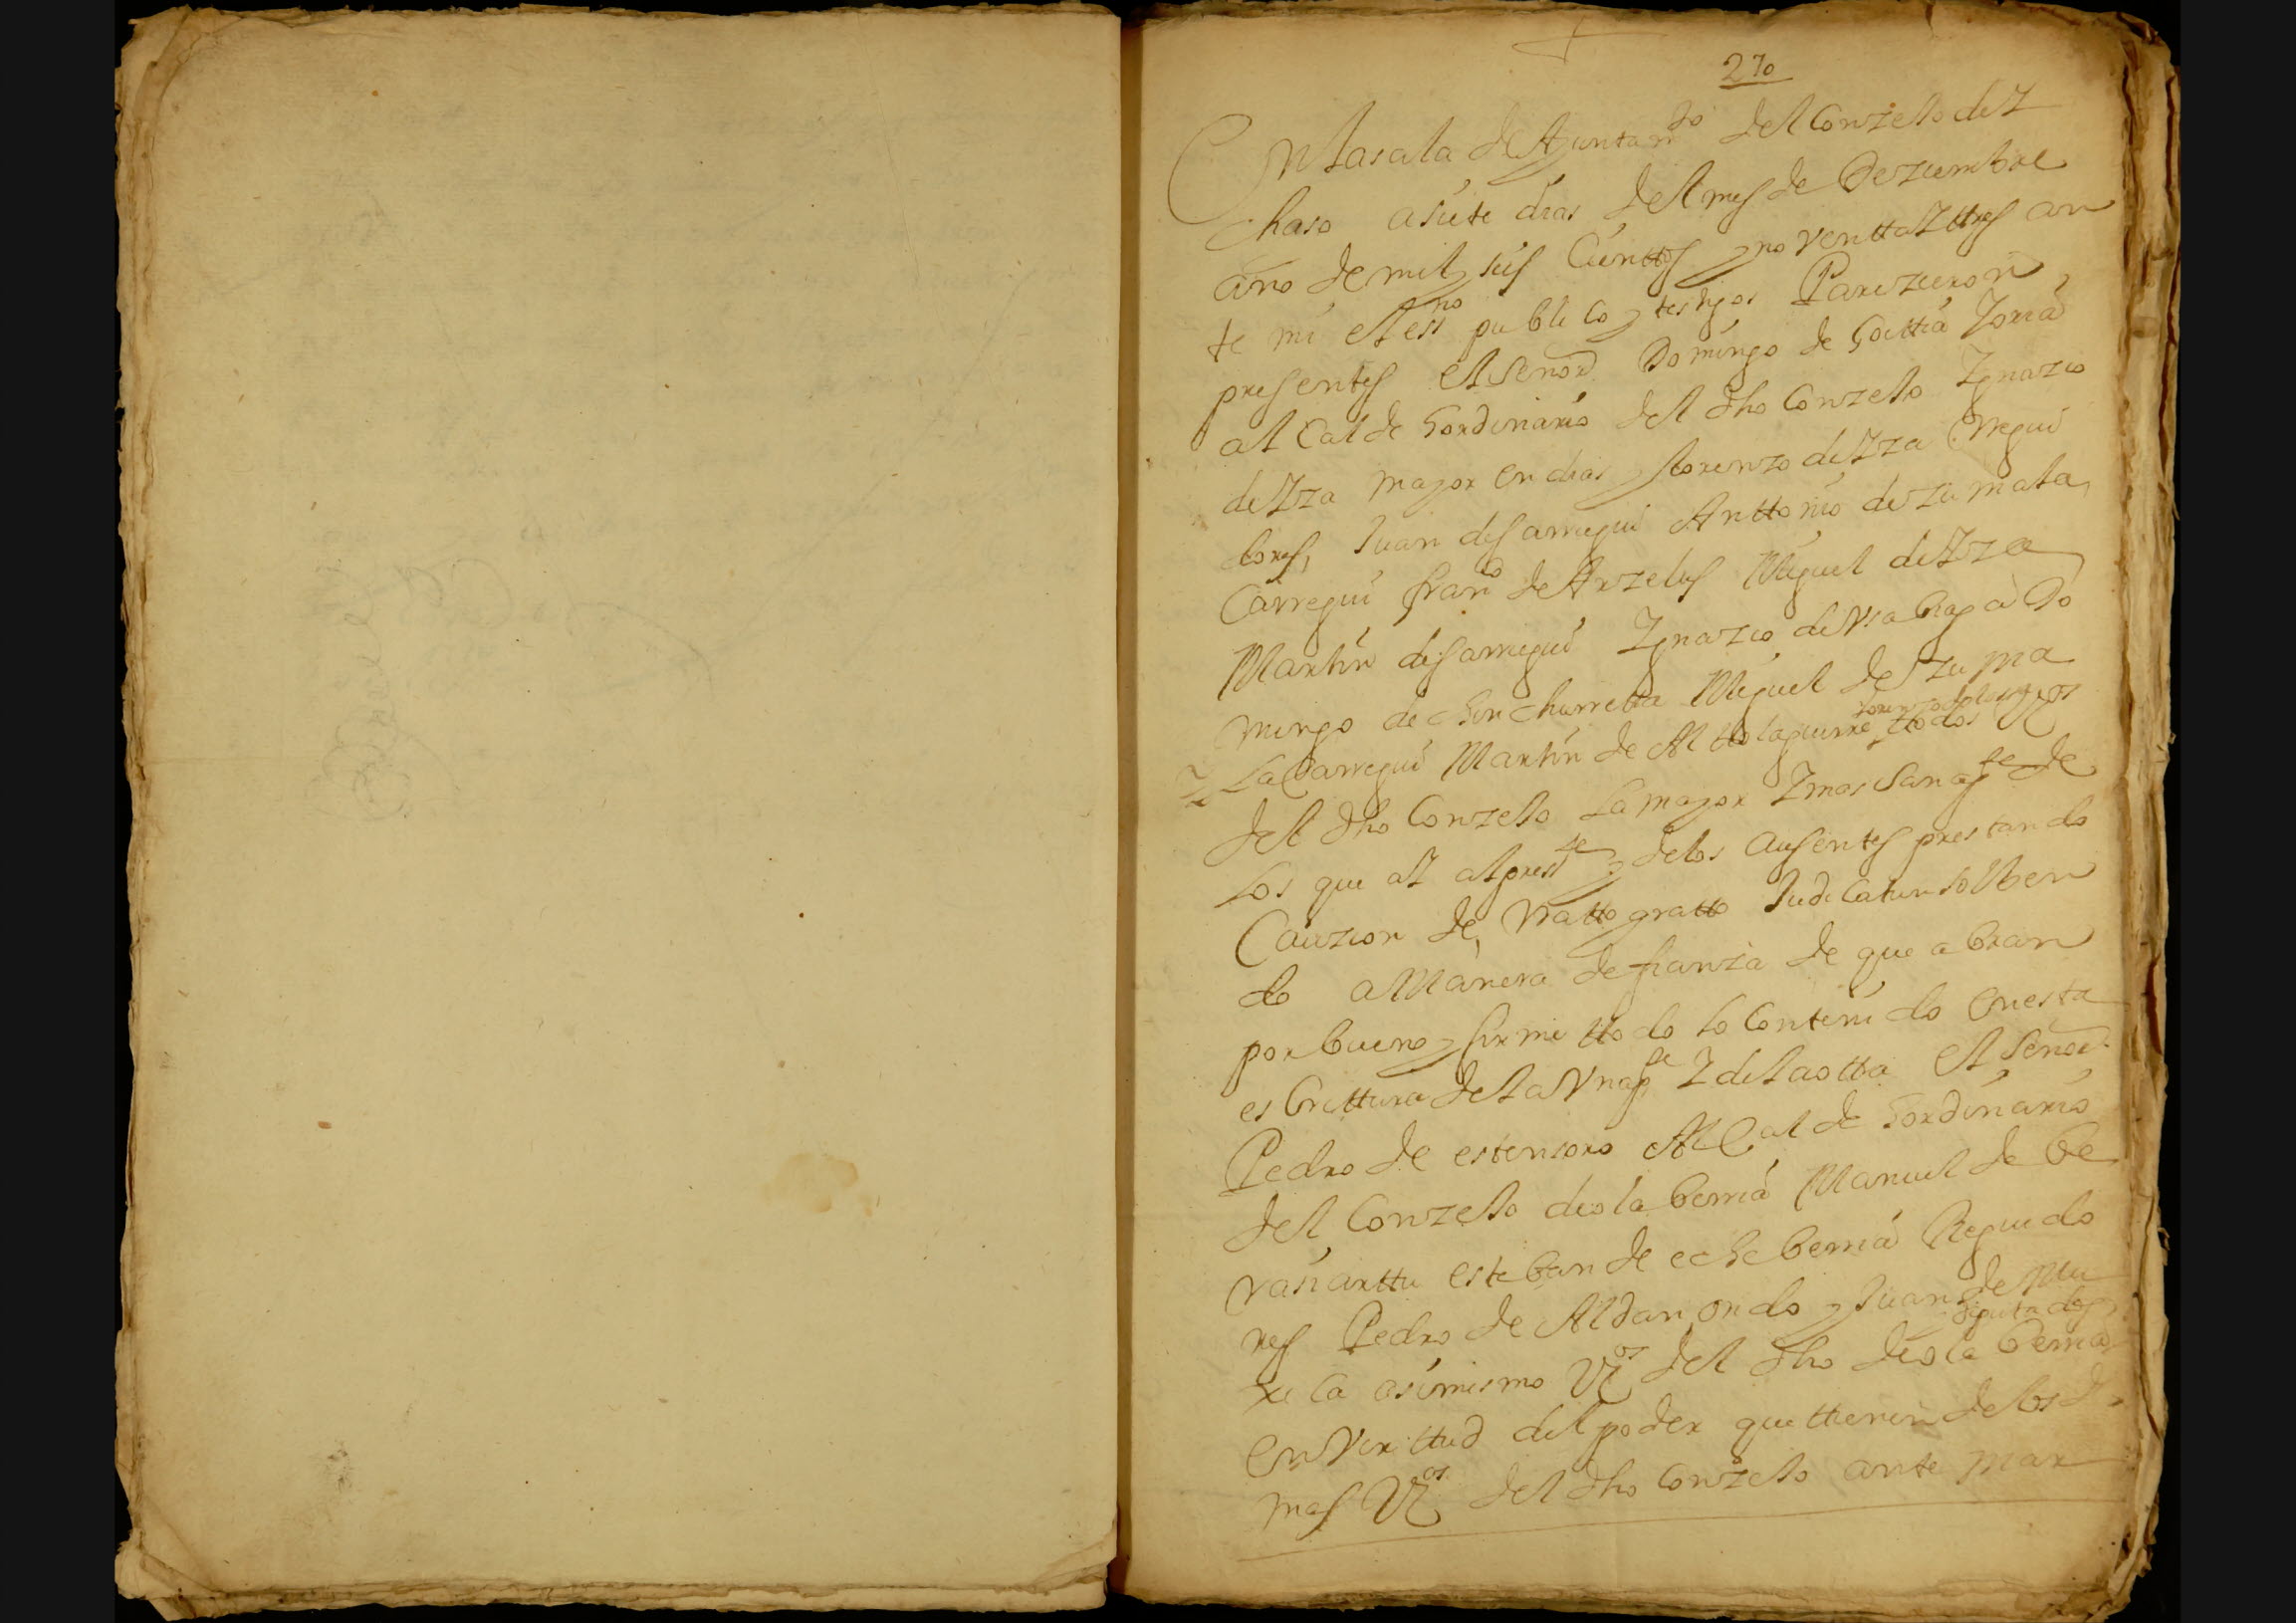 270
En la sala de Ayuntamto del Conzejo de Y
chaso a siete dias del mes de Deziembre
año de mil y seis Cientos y noventta y ttres an
te mi el essno publico y testigos Parezieron
presentes el señor Domingo de Goittia Joria
alcalde hordinario del dho Conzejo Ygnazio
de Yza mayor en dias y lorenzo de Yza Rregui
dores, Juan de sarregui Anttonio de Zumala
Carregui franco de Arzelus Miguel de Yza
Martin de sarregui Ygnazio de Vsabiaga Do
mingo de chinchurretta Miguel de Zuma
laCarregui Martin de Alttolaguirre ttodos Vzos
del dho Conzejo la mayor Y mas sana pte de
los que ay al presste y de los ausentes prestando
Cauzion de Rratto gratto Judicatun solben
do a Manera de fianza de que abran
por bueno y firme ttodo lo Contenido en esta
escrittura de la Vna pte Y de la ottra el señor
Pedro de estensoro AlCalde hordinario
del Conzejo de olaberria Manuel de Be
rasiarttu esteban de echeberria Reguido
res Pedro de Aldanondo y Juan de Mu
diputados
xica asimismo Vzos del dho de olaberria
en Virttud del poder que ttienen de los de
mas Vzos del dho Conzejo ante mar